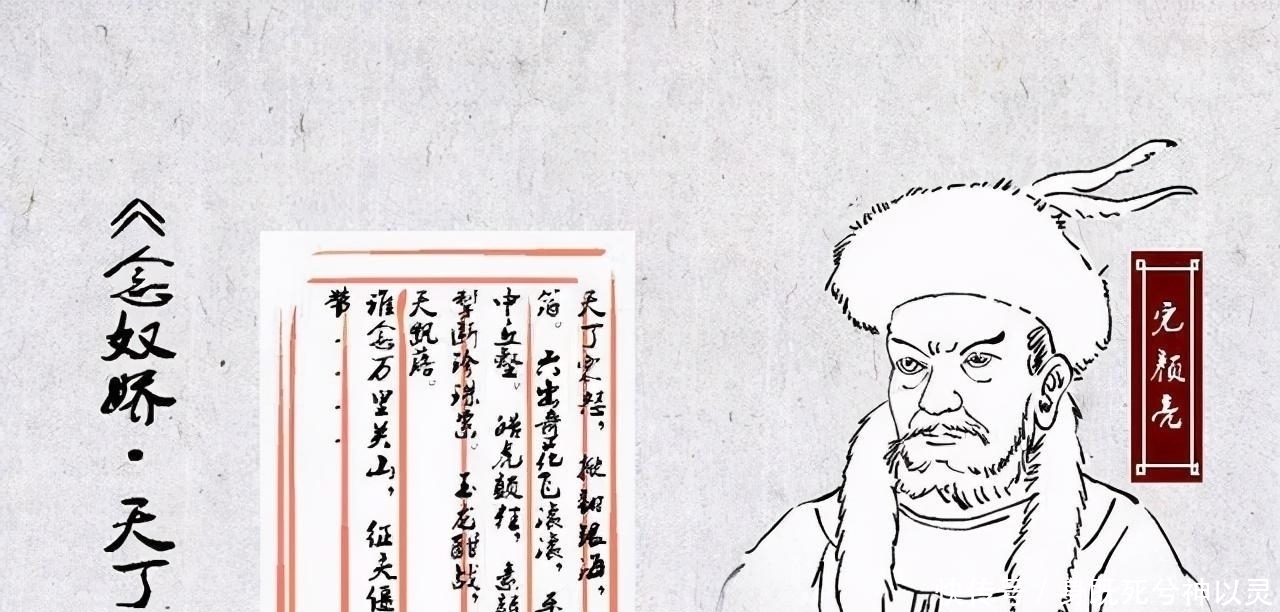 《念奴娇·天丁
天丁震怒，掀翻银海，
箔。六出奇花飞滚滚，平
中丘壑。皓虎颠狂，素麟
掣断珍珠索。玉龙酣战，
天飘落。
谁念万里关山，征夫僵
带....
完颜亮
快传号 / 身既死兮神以灵